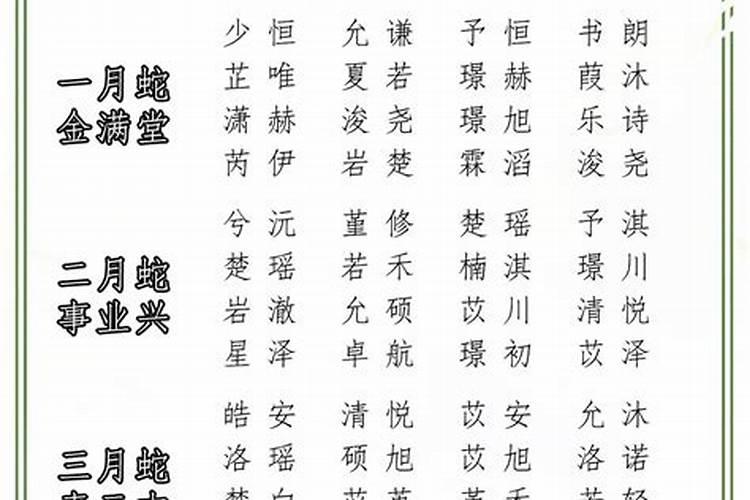 少恒 允谦 予恒 书朗
一月蛇
芷唯 夏若 璟赫 葭沐
金满堂
潇赫 浚尧 璟旭 乐诗
芮伊 岩楚 霖滔 浚尧
兮沅 堇修 楚瑶 予淇
二月蛇
楚瑶 若禾 楠淇 璟川
事业兴
岩澈 允硕 苡川 清悦
星泽 卓航 璟初 苡泽
皓安 清悦 苡安 允沐
三月蛇
洛瑶 硕旭 苡旭 洛诺